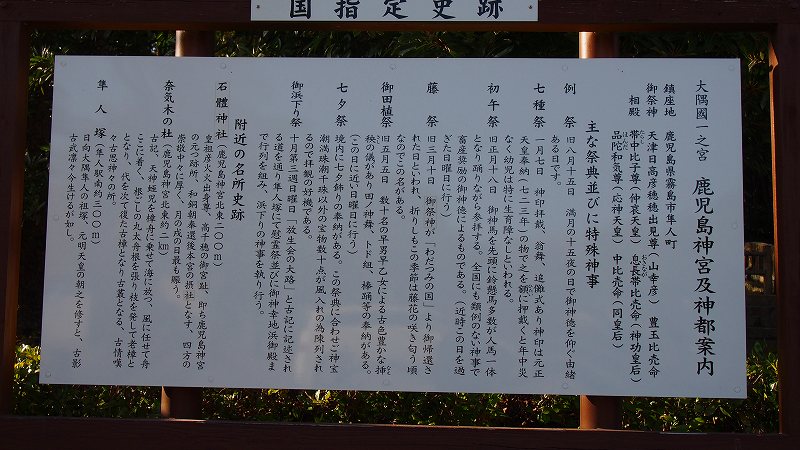 国指定史跡
大隅國一之宮 鹿児島神宮及神都案内
鎮座地 鹿児島県霧島市隼人町
御祭神 天津日高彦穂穂出見尊（山幸彦） 豊玉比売命
相殿 帯中比子尊（仲哀天皇） 息長帯比売命（神功皇后）
品陀和気尊（応神天皇） 中比売命（同皇后）
主な祭典並びに特殊神事
例祭 旧八月十五日 満月の十五夜の日で御神徳を仰ぐ由緒
ある日です。
七種祭 一月七日 神印拝戴、翁舞、追儺式あり神印は元正
天皇奉納（七二三年）の物で之を額に押戴くと年中災
なく幼児は特に生育障なしといわれる。
初午祭 旧正月十八日 御神馬を先頭に鈴懸馬多数が人馬一体
となり踊りながら参拝する。全国にも類例のない神事で
畜産奨励の御神徳によるものである。（近時この日を過
ぎた日曜日に行う）
藤祭 旧三月十日 御祭神が「わだつみの国」より御帰還さ
れた日といわれ、折りしもこの季節は藤花の咲き匂う頃
なのでこの名がある。
御田植祭 旧五月五日 数十名の早男早乙女による古色豊かな挿
秧の儀があり田ノ神舞、トド組、棒踊等の奉納がある。
（この日に近い日曜日に行う）
七夕祭 境内に七夕飾りの奉納がある。この祭典に合わせご神宝
潮満珠潮干珠以外の宝物数十点が風入れの為陳列され
るので拝観の好機である。
御浜下り祭 十月第三週日曜日「放生会の大路」と古記に記述され
る道を通り隼人塚にて慰霊祭並びに御神幸地浜御殿ま
で行列を組み、浜下りの神事を執り行う。
附近の名所史跡
石體神社（鹿児島神宮北東二〇〇m）
皇祖彦火火出身尊、高千穂の御宮趾、即ち鹿児島神宮
の元つ跡所、和銅朝奉還後本宮の摂社となす、四方の
崇敬中々に厚く、月の戌の日最も賑う。
奈気木の杜（鹿児島神宮北東約二km）
古記、天神蛭児を樟舟に乗せて海に放つ、風に任せて舟
ここに着く、根こじの丸太舟根を張り枝を発して老樟と
となり、代を次て復た古樟となり古叢となる、古情嘆
々古思神々の所。
隼人塚（隼人駅南約三〇〇m）
日向大隅隼人の祖塚、元明天皇の朝之を修すと、古影
古武凛々今生けるが如し。